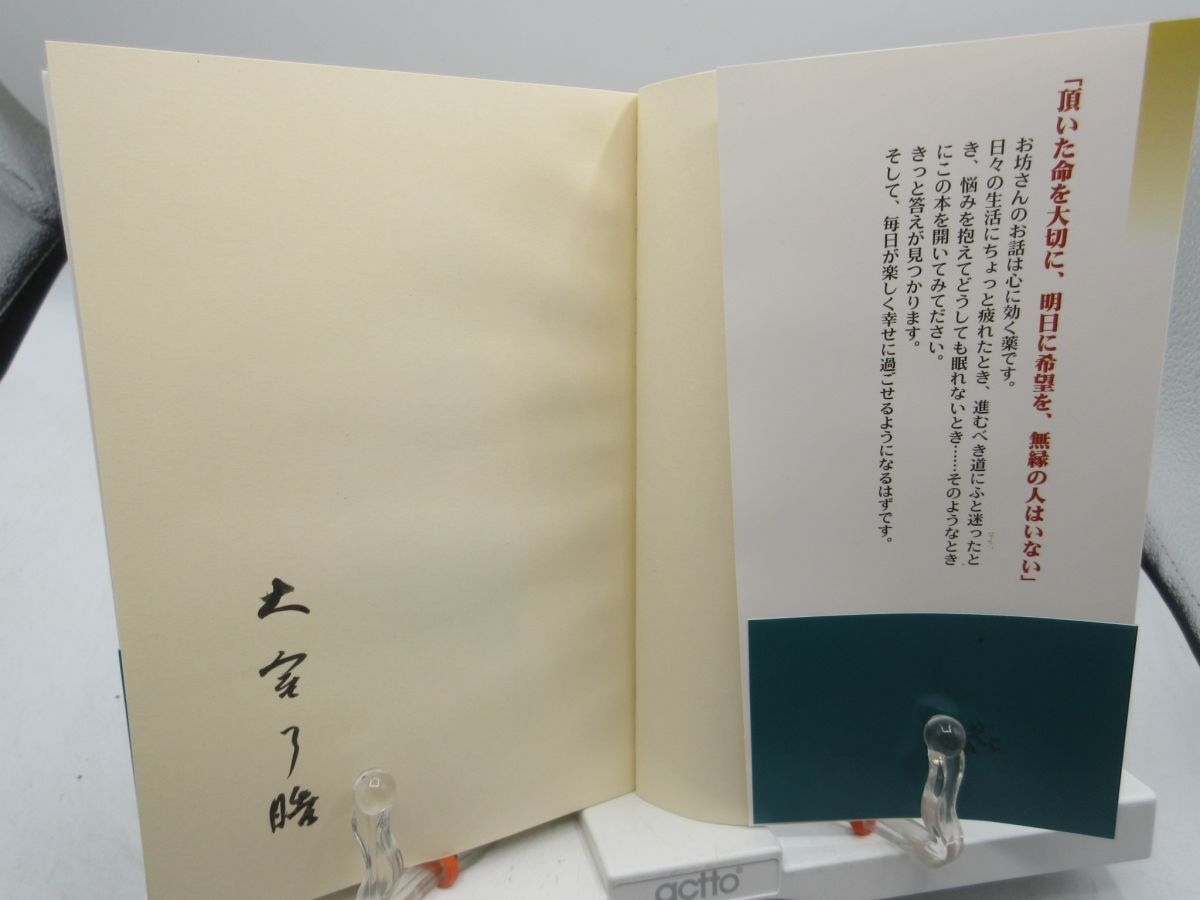 「頂いた命を大切に、明日に希望を、無縁の人はいない」
お坊さんのお話は心に効く薬です。
日々の生活にちょっと疲れたとき、進むべき道にふと迷ったと
き、悩みを抱えてどうしても眠れないとき……そのようなとき
にこの本を開いてみてださい。
きっと答えが見つかります。
そして、毎日が楽しく幸せに過ごせるようになるはずです。
了
皓
actto